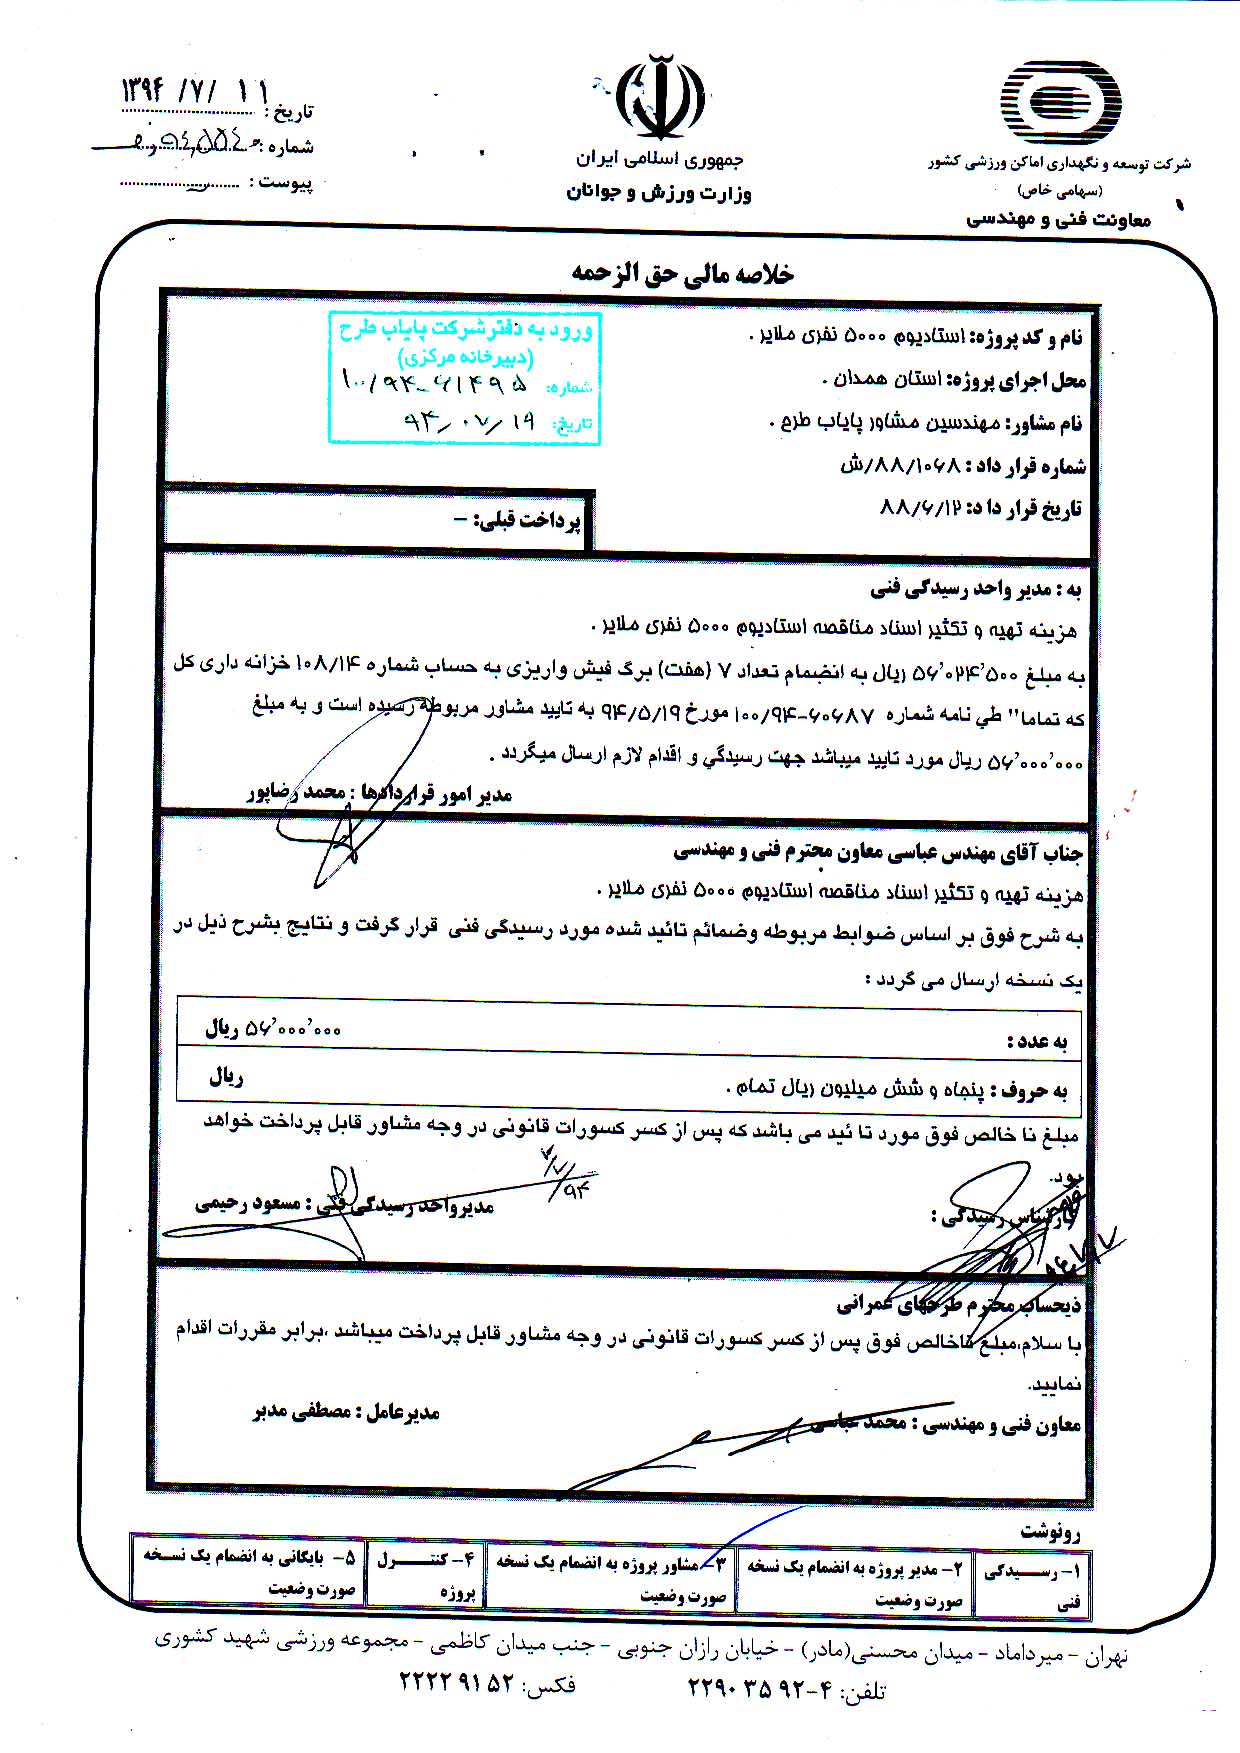 شرکت توسعه و نگهداری اماکن ورزشی کشور
(سهامی خاص)
معاونت فنی و مهندسی
جمهوری اسلامی ایران
وزارت ورزش و جوانان
تاریخ : ۱۳۹۴/۷/۱۱
شماره :
پیوست :
خلاصه مالی حق الزحمه
نام و کد پروژه: استادیوم ۵۰۰۰ نفری ملایر .
محل اجرای پروژه: استان همدان .
نام مشاور: مهندسین مشاور پایاب طرح .
شماره قرار داد : ۸۸/۱۰۶۸/ش
تاریخ قرار داد: ۸۸/۶/۱۲
ورود به دفتر شرکت پایاب طرح
(دبیرخانه مرکزی)
شماره: ۱۰۰/۹۴-۶۱۴۹۵
تاریخ: ۹۴/۰۷/۱۹
پرداخت قبلی: –
به : مدیر واحد رسیدگی فنی
هزینه تهیه و تکثیر اسناد مناقصه استادیوم ۵۰۰۰ نفری ملایر .
به مبلغ ۵۶٬۰۲۴٬۵۰۰ ریال به انضمام تعداد ۷ (هفت) برگ فیش واریزی به حساب شماره ۱۰۸/۱۴ خزانه داری کل
که تماما" طي نامه شماره ۶۰۶۸۷-۱۰۰/۹۴ مورخ ۹۴/۵/۱۹ به تایید مشاور مربوطه رسیده است و به مبلغ
۵۶٬۰۰۰٬۰۰۰ ریال مورد تایید میباشد جهت رسیدگي و اقدام لازم ارسال میگردد .
مدیر امور قراردادها : محمد رضاپور
جناب آقای مهندس عباسی معاون محترم فنی و مهندسی
هزینه تهیه و تکثیر اسناد مناقصه استادیوم ۵۰۰۰ نفری ملایر .
به شرح فوق بر اساس ضوابط مربوطه وضمائم تائید شده مورد رسیدگی فنی قرار گرفت و نتایج بشرح ذیل در
یک نسخه ارسال می گردد :
به عدد : ۵۶٬۰۰۰٬۰۰۰ ریال
به حروف : پنجاه و شش میلیون ریال تمام . ریال
مبلغ نا خالص فوق مورد تا ئید می باشد که پس از کسر کسورات قانونی در وجه مشاور قابل پرداخت خواهد
بود.
کارشناس رسیدگی :
مدیرواحد رسیدگی فنی : مسعود رحیمی
ذیحساب محترم طرحهای عمرانی
با سلام،مبلغ ناخالص فوق پس از کسر کسورات قانونی در وجه مشاور قابل پرداخت میباشد ،برابر مقررات اقدام
نمایید.
معاون فنی و مهندسی : محمد عباسی
مدیرعامل : مصطفی مدبر
رونوشت
۱- رسیدگی فنی
۲- مدیر پروژه به انضمام یک نسخه صورت وضعیت
۳- مشاور پروژه به انضمام یک نسخه صورت وضعیت
۴- کنترل پروژه
۵- بایگانی به انضمام یک نسخه صورت وضعیت
تهران – میرداماد – میدان محسنی(مادر) – خیابان رازان جنوبی – جنب میدان کاظمی – مجموعه ورزشی شهید کشوری
تلفن: ۴-۲۲۹۰۳۵۹۲ فکس: ۲۲۲۲۹۱۵۲